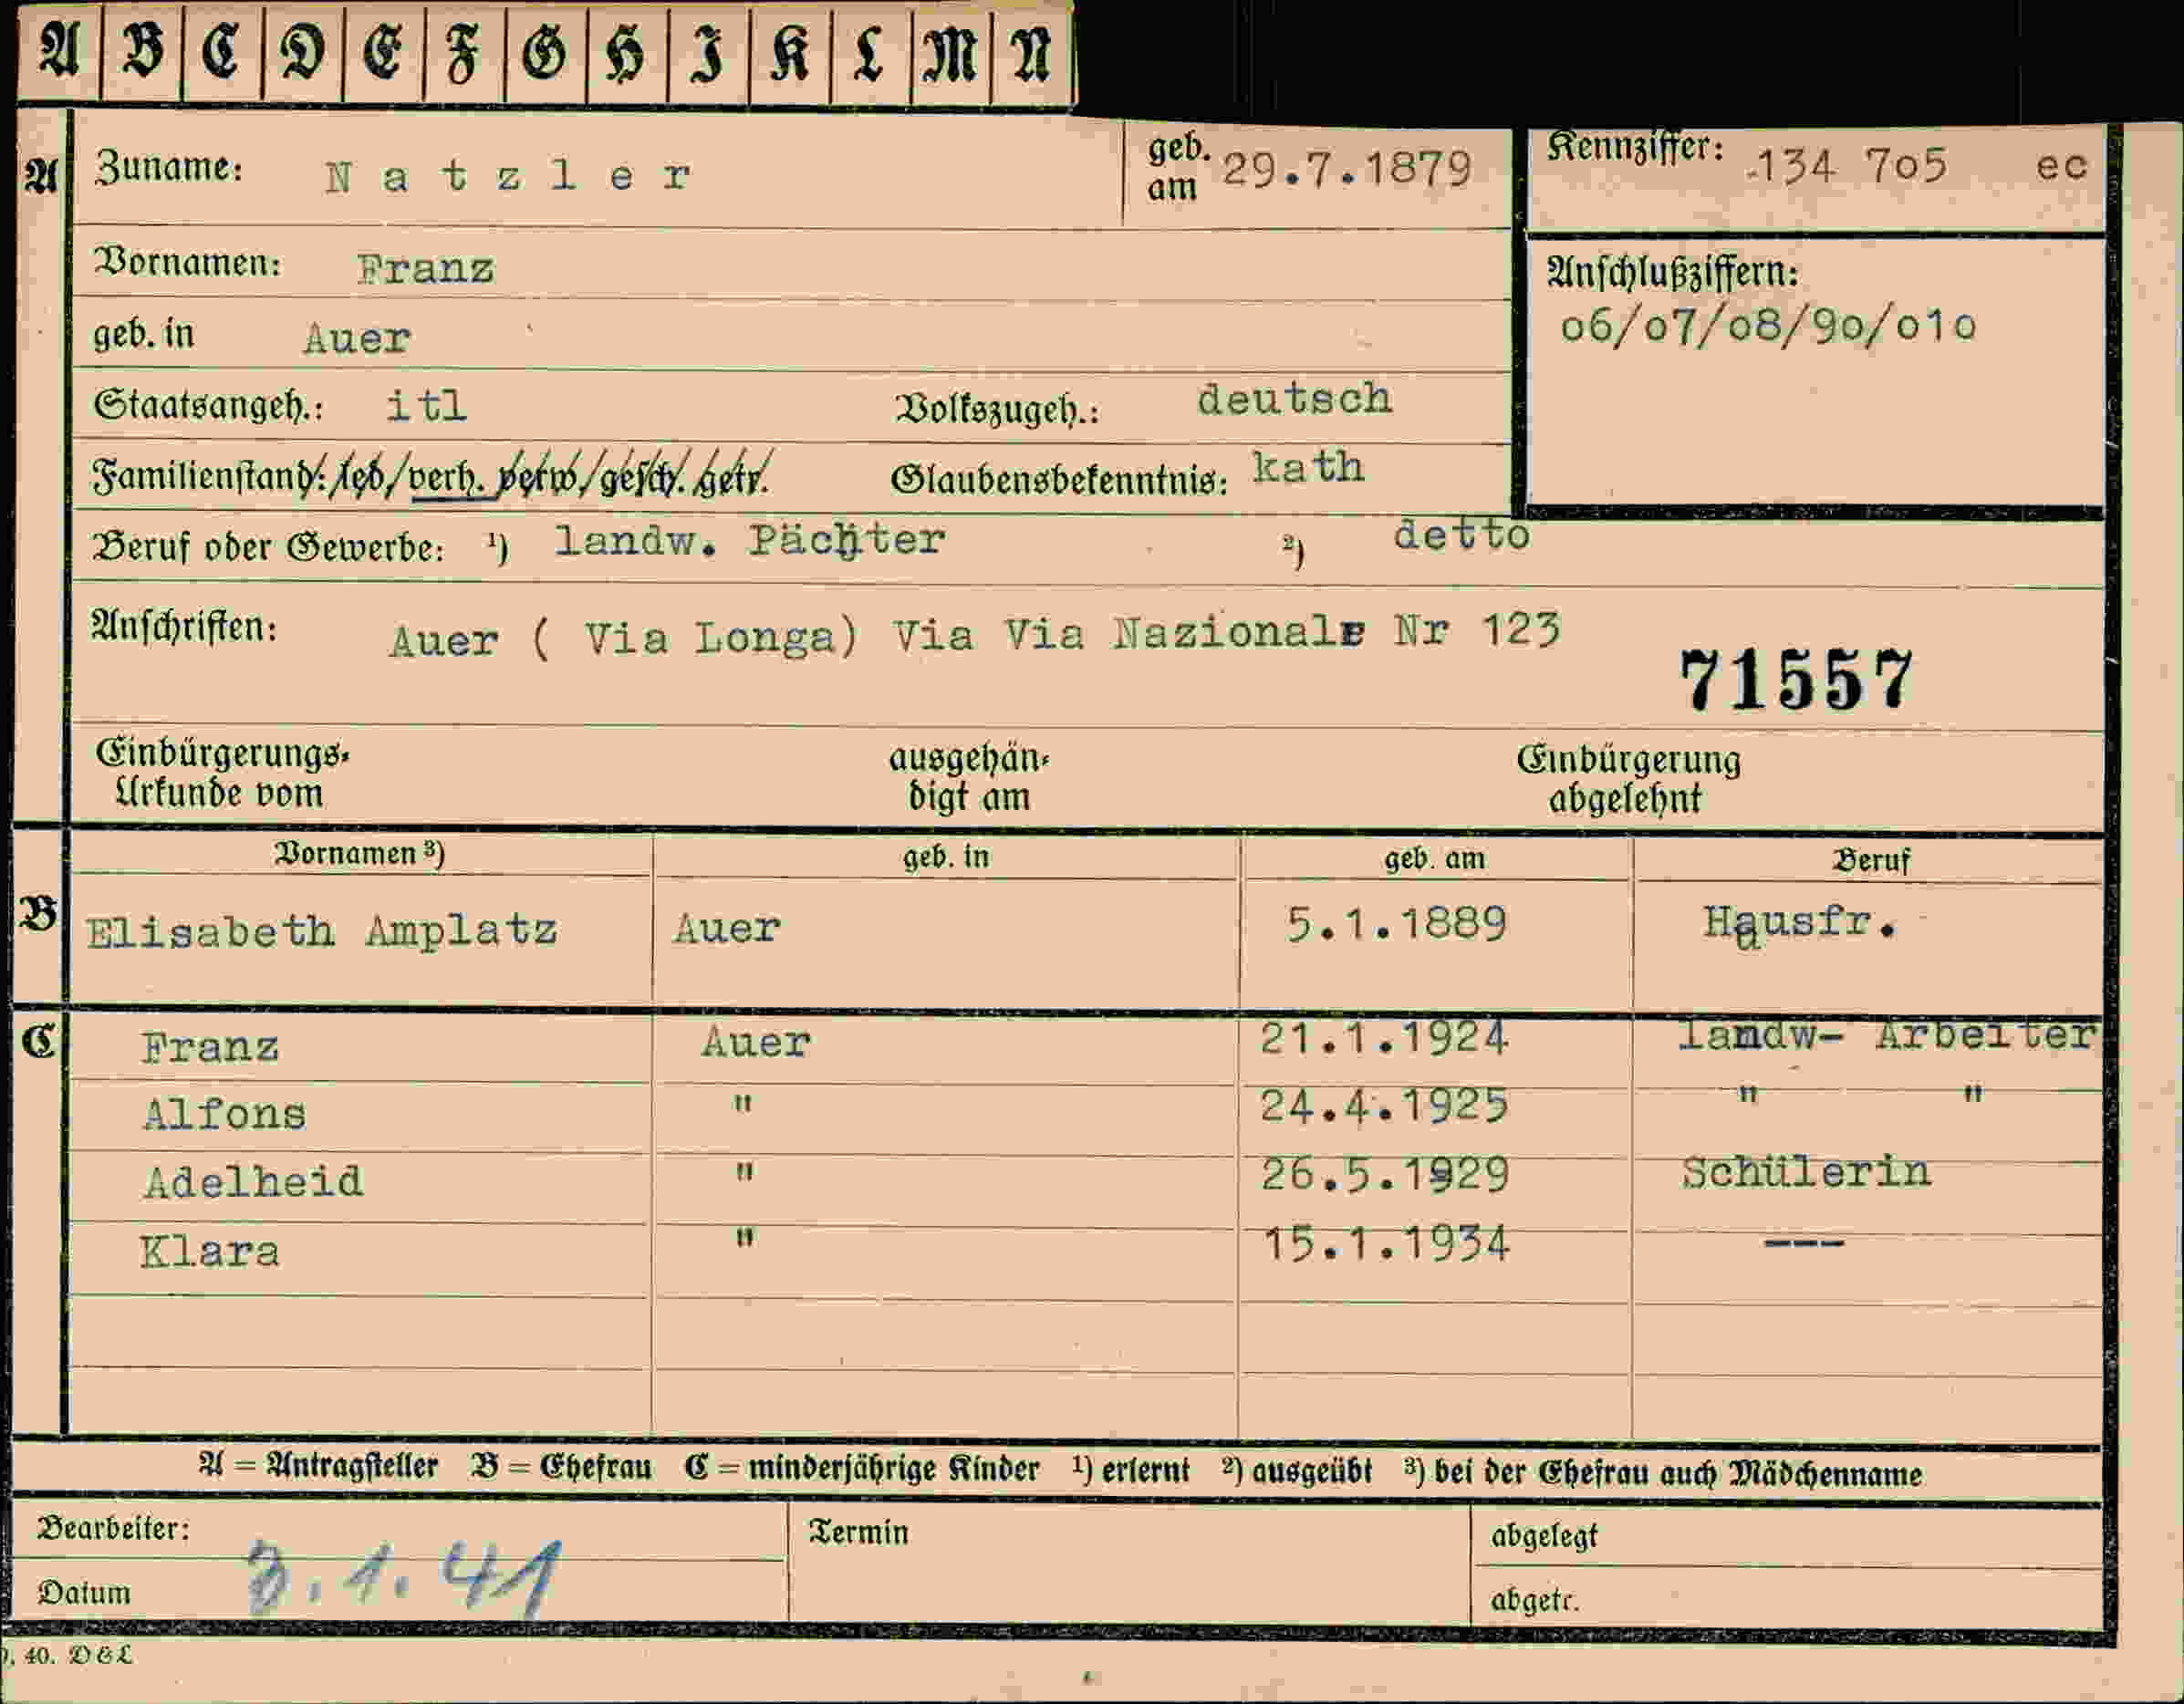 A B C D E F G H I K L M N
A Zuname: Natzler geb. am 29.7.1879 Kennziffer: 134 7o5 ec
Vornamen: Franz Anschlußziffern:
geb. in Auer o6/o7/o8/9o/o1o
Staatsangeh.: itl Volkszugeh.: deutsch
Familienstand: led/verh. verw/gesch. getr. Glaubensbekenntnis: kath
Beruf oder Gewerbe: ¹) landw. Pächter ²) detto
Anschriften: Auer ( Via Longa) Via Via Nazionale Nr 123
71557
Einbürgerungs- ausgehän- Einbürgerung
Urkunde vom digt am abgelehnt
Vornamen ³) geb. in geb. am Beruf
B Elisabeth Amplatz Auer 5.1.1889 Hausfr.
C Franz Auer 21.1.1924 landw- Arbeiter
Alfons " 24.4.1925 " "
Adelheid " 26.5.1929 Schülerin
Klara " 15.1.1934 ---
A = Antragsteller B = Ehefrau C = minderjährige Kinder ¹) erlernt ²) ausgeübt ³) bei der Ehefrau auch Mädchenname
Bearbeiter: Termin abgelegt
Datum 3.1.41 abgetr.
40. D&L